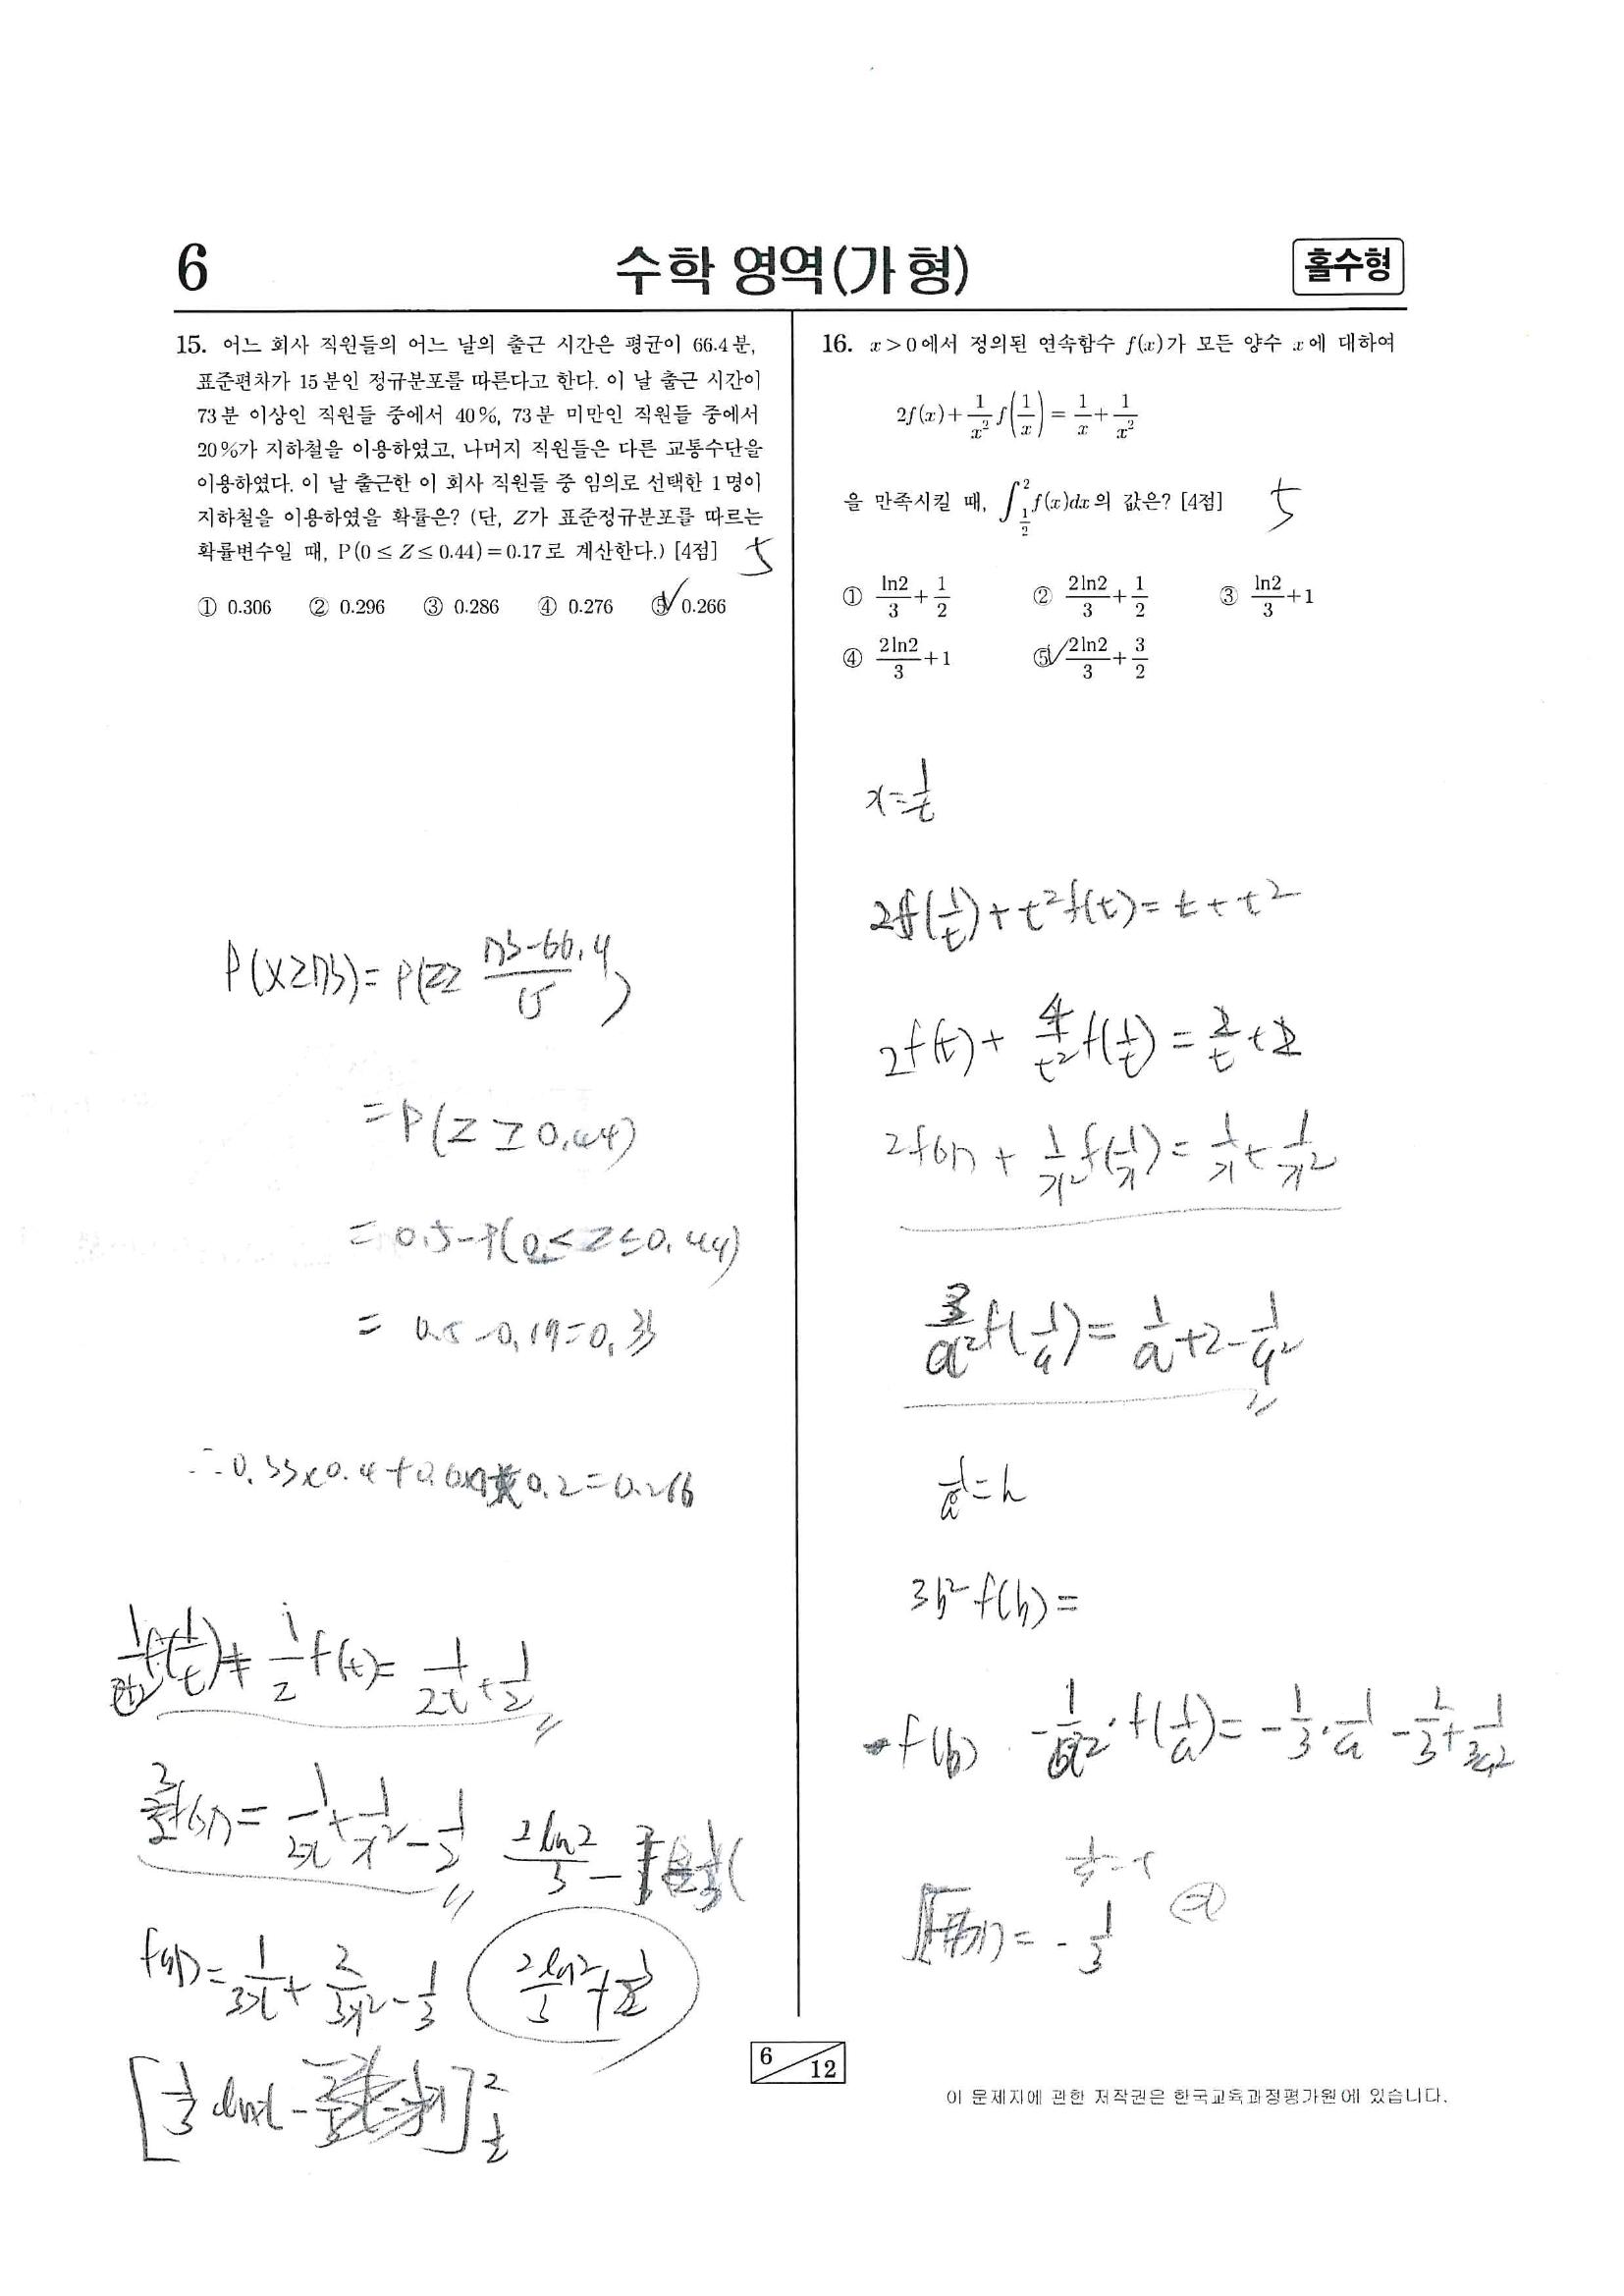 6
수학 영역(가형)
홀수형
15. 어느 회사 직원들의 어느 날의 출근 시간은 평균이 66.4분,
표준편차가 15분인 정규분포를 따른다고 한다. 이 날 출근 시간이
73분 이상인 직원들 중에서 40%, 73분 미만인 직원들 중에서
20%가 지하철을 이용하였고, 나머지 직원들은 다른 교통수단을
이용하였다. 이 날 출근한 이 회사 직원들 중 임의로 선택한 1명이
지하철을 이용하였을 확률은? (단, Z가 표준정규분포를 따르는
확률변수일 때, P(0≤Z≤0.44)=0.17로 계산한다.) [4점] 5
① 0.306 ② 0.296 ③ 0.286 ④ 0.276 ⑤ 0.266
P(X≥73)=P(Z≥ (73-66.4)/15)
=P(Z≥0.44)
=0.5-P(0≤Z≤0.44)
=0.5-0.17=0.33
∴0.33×0.4+0.67×0.2=0.266
1/2 f(t)= 1/2t + 1/2
3/2 f(x)= 1/2x + 1/x² - 1/2
f(x)= 1/3x + 2/3x² - 1/3
2ln2/3 + 1/2
[1/3 lnx -
16. x>0에서 정의된 연속함수 f(x)가 모든 양수 x에 대하여
2f(x)+1/x² f(1/x)=1/x+1/x²
을 만족시킬 때, ∫_{1/2}^{2} f(x)dx의 값은? [4점] 5
① ln2/3+1/2 ② 2ln2/3+1/2 ③ ln2/3+1
④ 2ln2/3+1 ⑤ 2ln2/3+3/2
x=1/t
2f(1/t)+t²f(t)=t+t²
2f(t)+4/t² f(1/t)=2/t+2
2f(x)+1/x² f(1/x)=1/x+1/x²
3/a² f(1/a)=1/a+2-1/a²
1/a=h
3h²f(h)=
f(h) -1/a²·f(1/a)=-1/3·1/a-2/3+1/3a²
= -1/3
6
12
이 문제지에 관한 저작권은 한국교육과정평가원에 있습니다.